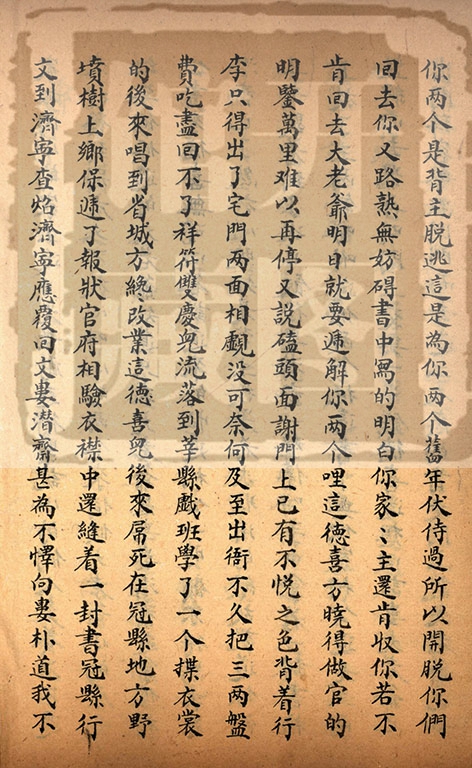 你两个是背主脱逃這是為你两个舊年伏侍過所以開脱你們
回去你又路熟無妨碍書中寫的明白你家〻主還肯収你若不
肯回去大老爺明日就要逓解你两个哩這德喜方曉得做官的
明鑒萬里难以再停又説磕頭面謝門上已有不悦之色背着行
李只得出了宅門两面相覷没可奈何及至出衙不久把三两盤
費吃盡回不了祥符雙慶兒流落到莘縣戲班學了一个揲衣裳
的後來唱到省城方終改業這德喜兒後來屌死在冠縣地方野
墳樹上鄉保逓了報狀官府相驗衣襟中還縫着一封書冠縣行
文到濟寧查焰濟寧應覆回文婁潜齋甚為不懌向婁朴道我不